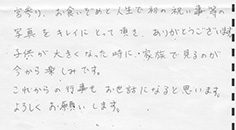 宮参り、お食いぞめと人生で初の祝い事等の
写真をキレイにとって頂き、ありがとうございます。
子供が大きくなった時に、家族で見るのが
今から楽しみです。
これからの行事もお世話になると思います。
よろしくお願いします。